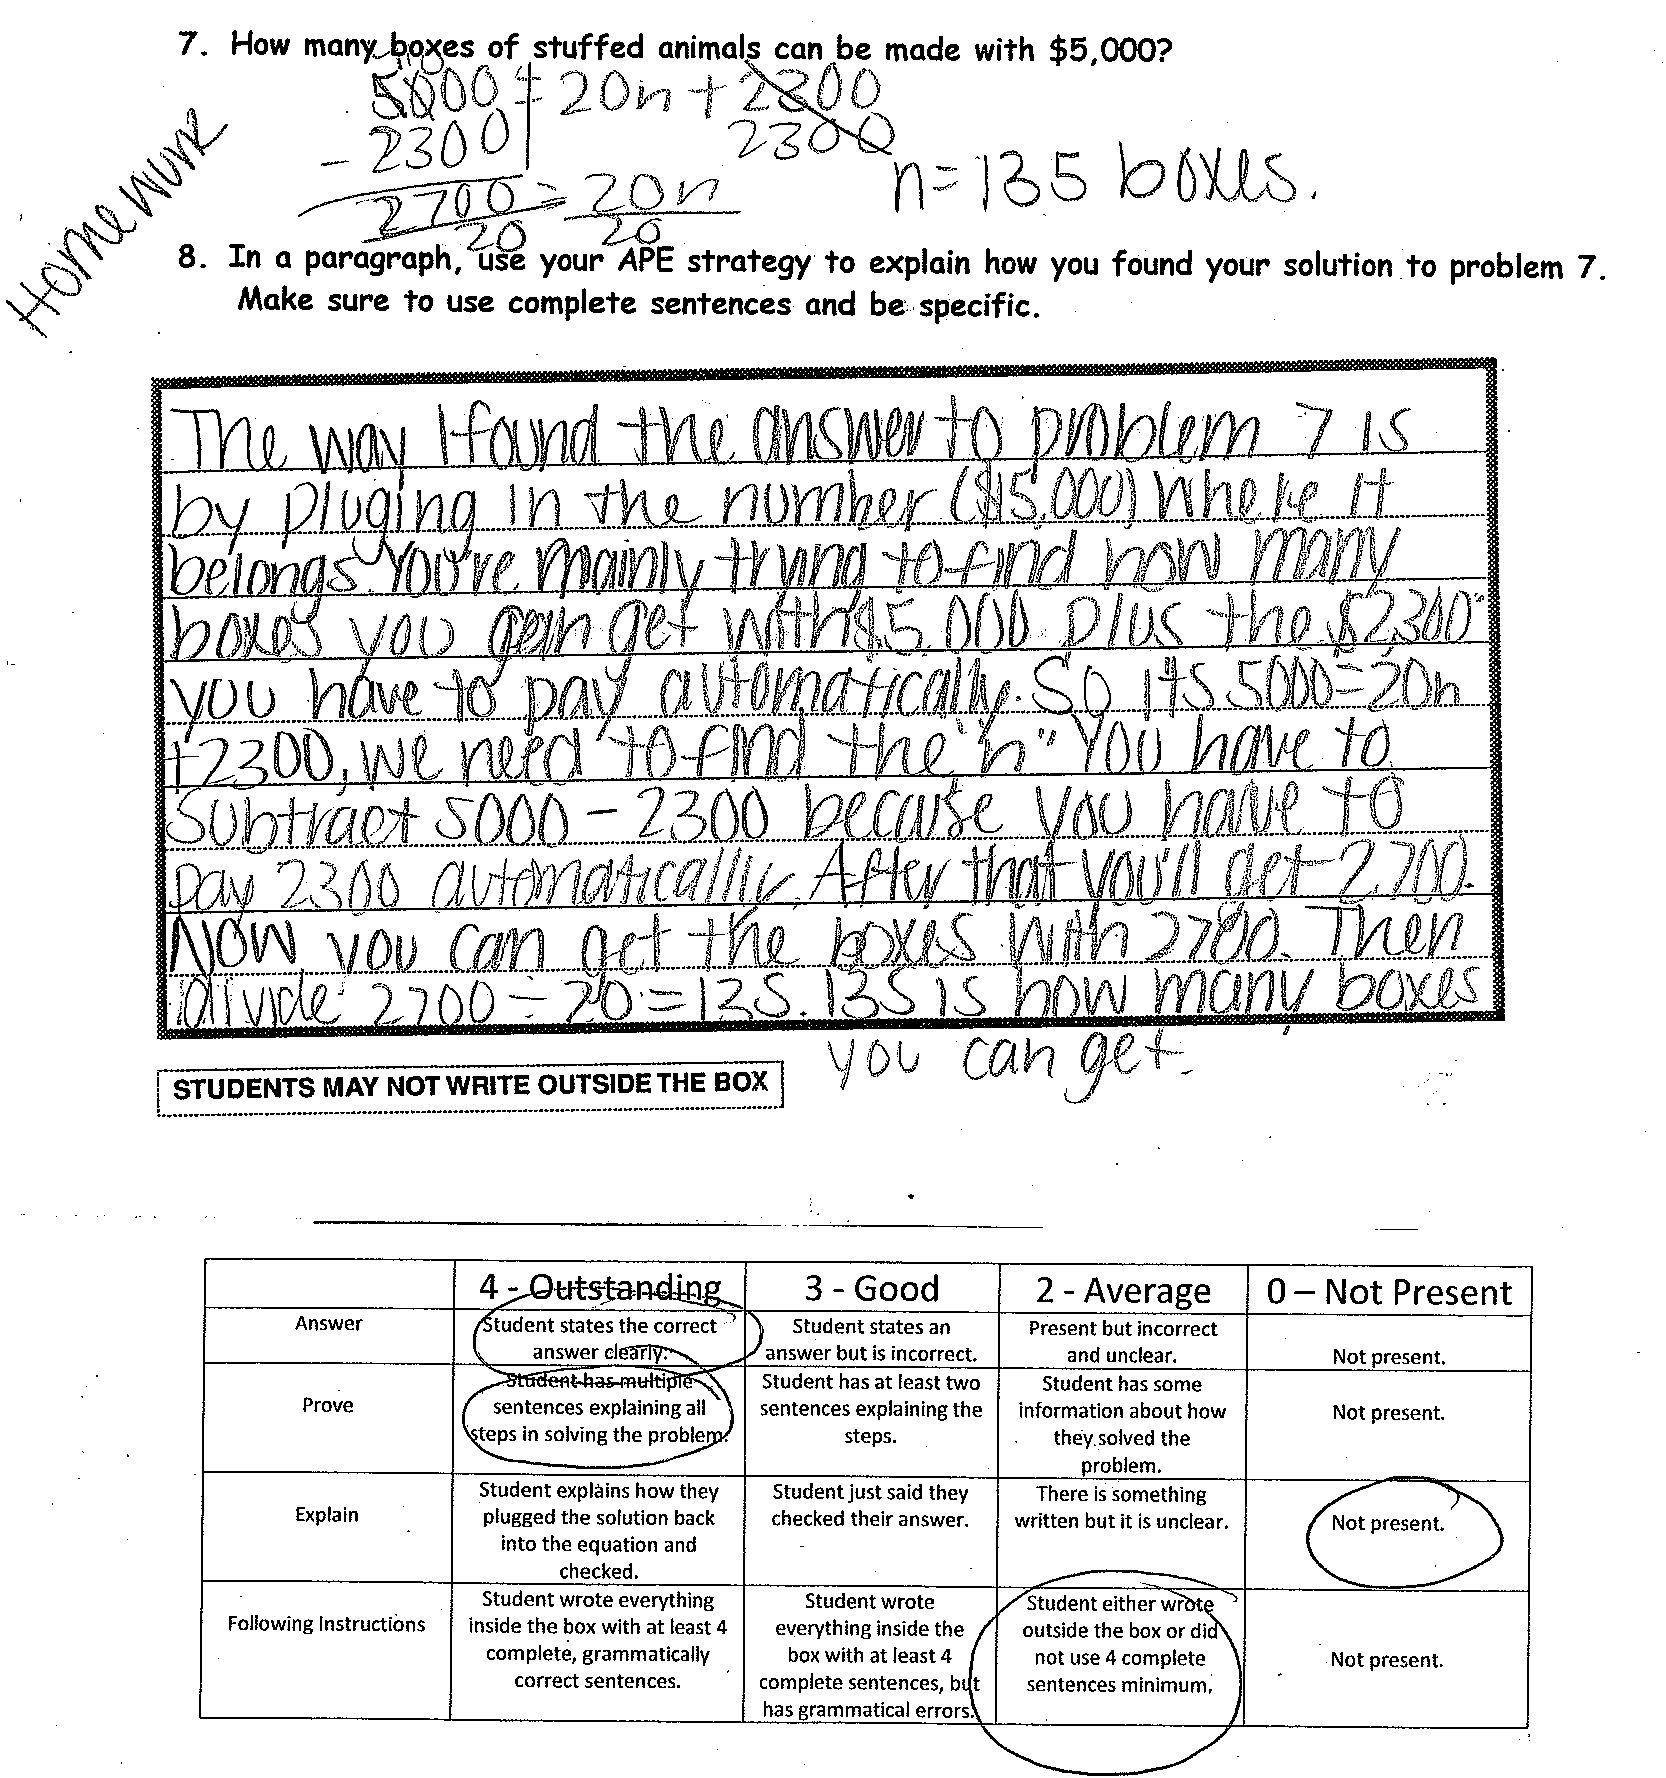 7. How many boxes of stuffed animals can be made with $5,000?
5000 = 20n + 2300
- 2300 2300
2700 = 20n
20 20
n = 135 boxes.
Homework
8. In a paragraph, use your APE strategy to explain how you found your solution to problem 7.
Make sure to use complete sentences and be specific.
The way I found the answer to problem 7 is
by pluging in the number ($5,000) where it
belongs. You're mainly trying to find how many
boxes you can get with $5,000 plus the $2,300
you have to pay automatically. So its 5000=20n
+2300, we need to find the "n" You have to
subtract 5000 - 2300 because you have to
pay 2300 automatically. After that you'll get 2,700.
Now you can get the boxes with 2700. Then
divide 2700 ÷ 20 = 135. 135 is how many boxes
you can get.
STUDENTS MAY NOT WRITE OUTSIDE THE BOX
4 - Outstanding 3 - Good 2 - Average 0 – Not Present
Answer
Student states the correct answer clearly.
Student states an answer but is incorrect.
Present but incorrect and unclear.
Not present.
Prove
Student has multiple sentences explaining all steps in solving the problem.
Student has at least two sentences explaining the steps.
Student has some information about how they solved the problem.
Not present.
Explain
Student explains how they plugged the solution back into the equation and checked.
Student just said they checked their answer.
There is something written but it is unclear.
Not present.
Following Instructions
Student wrote everything inside the box with at least 4 complete, grammatically correct sentences.
Student wrote everything inside the box with at least 4 complete sentences, but has grammatical errors.
Student either wrote outside the box or did not use 4 complete sentences minimum.
Not present.